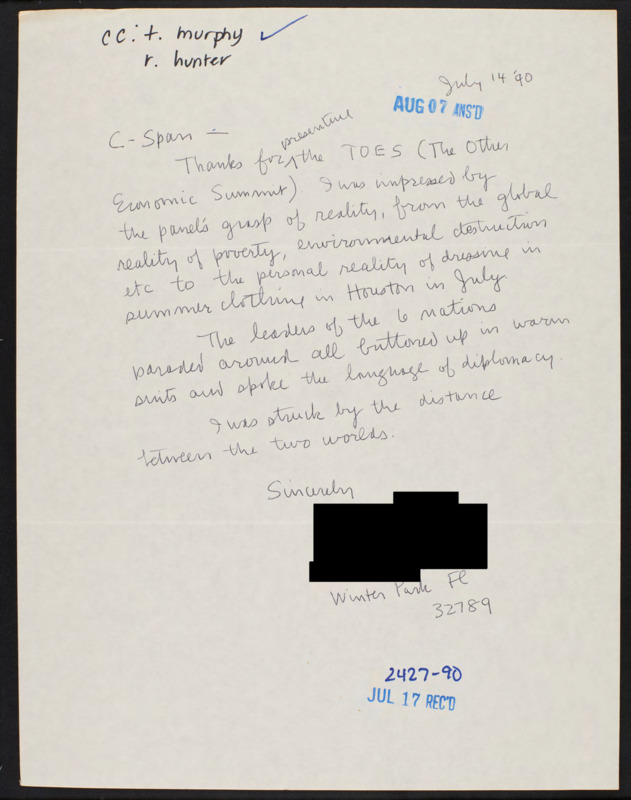 cc: t. murphy ✓
r. hunter
July 14 '90
AUG 07 ANS'D
C-Span —
Thanks for ^presenting the TOES (The Other
Economic Summit). I was impressed by
the panel's grasp of reality, from the global
reality of poverty, environmental destruction
etc to the personal reality of dressing in
summer clothing in Houston in July.
The leaders of the 6 nations
paraded around all buttoned up in warm
suits and spoke the language of diplomacy.
I was struck by the distance
between the two worlds.
Sincerely
Winter Park Fl
32789
2427-90
JUL 17 REC'D